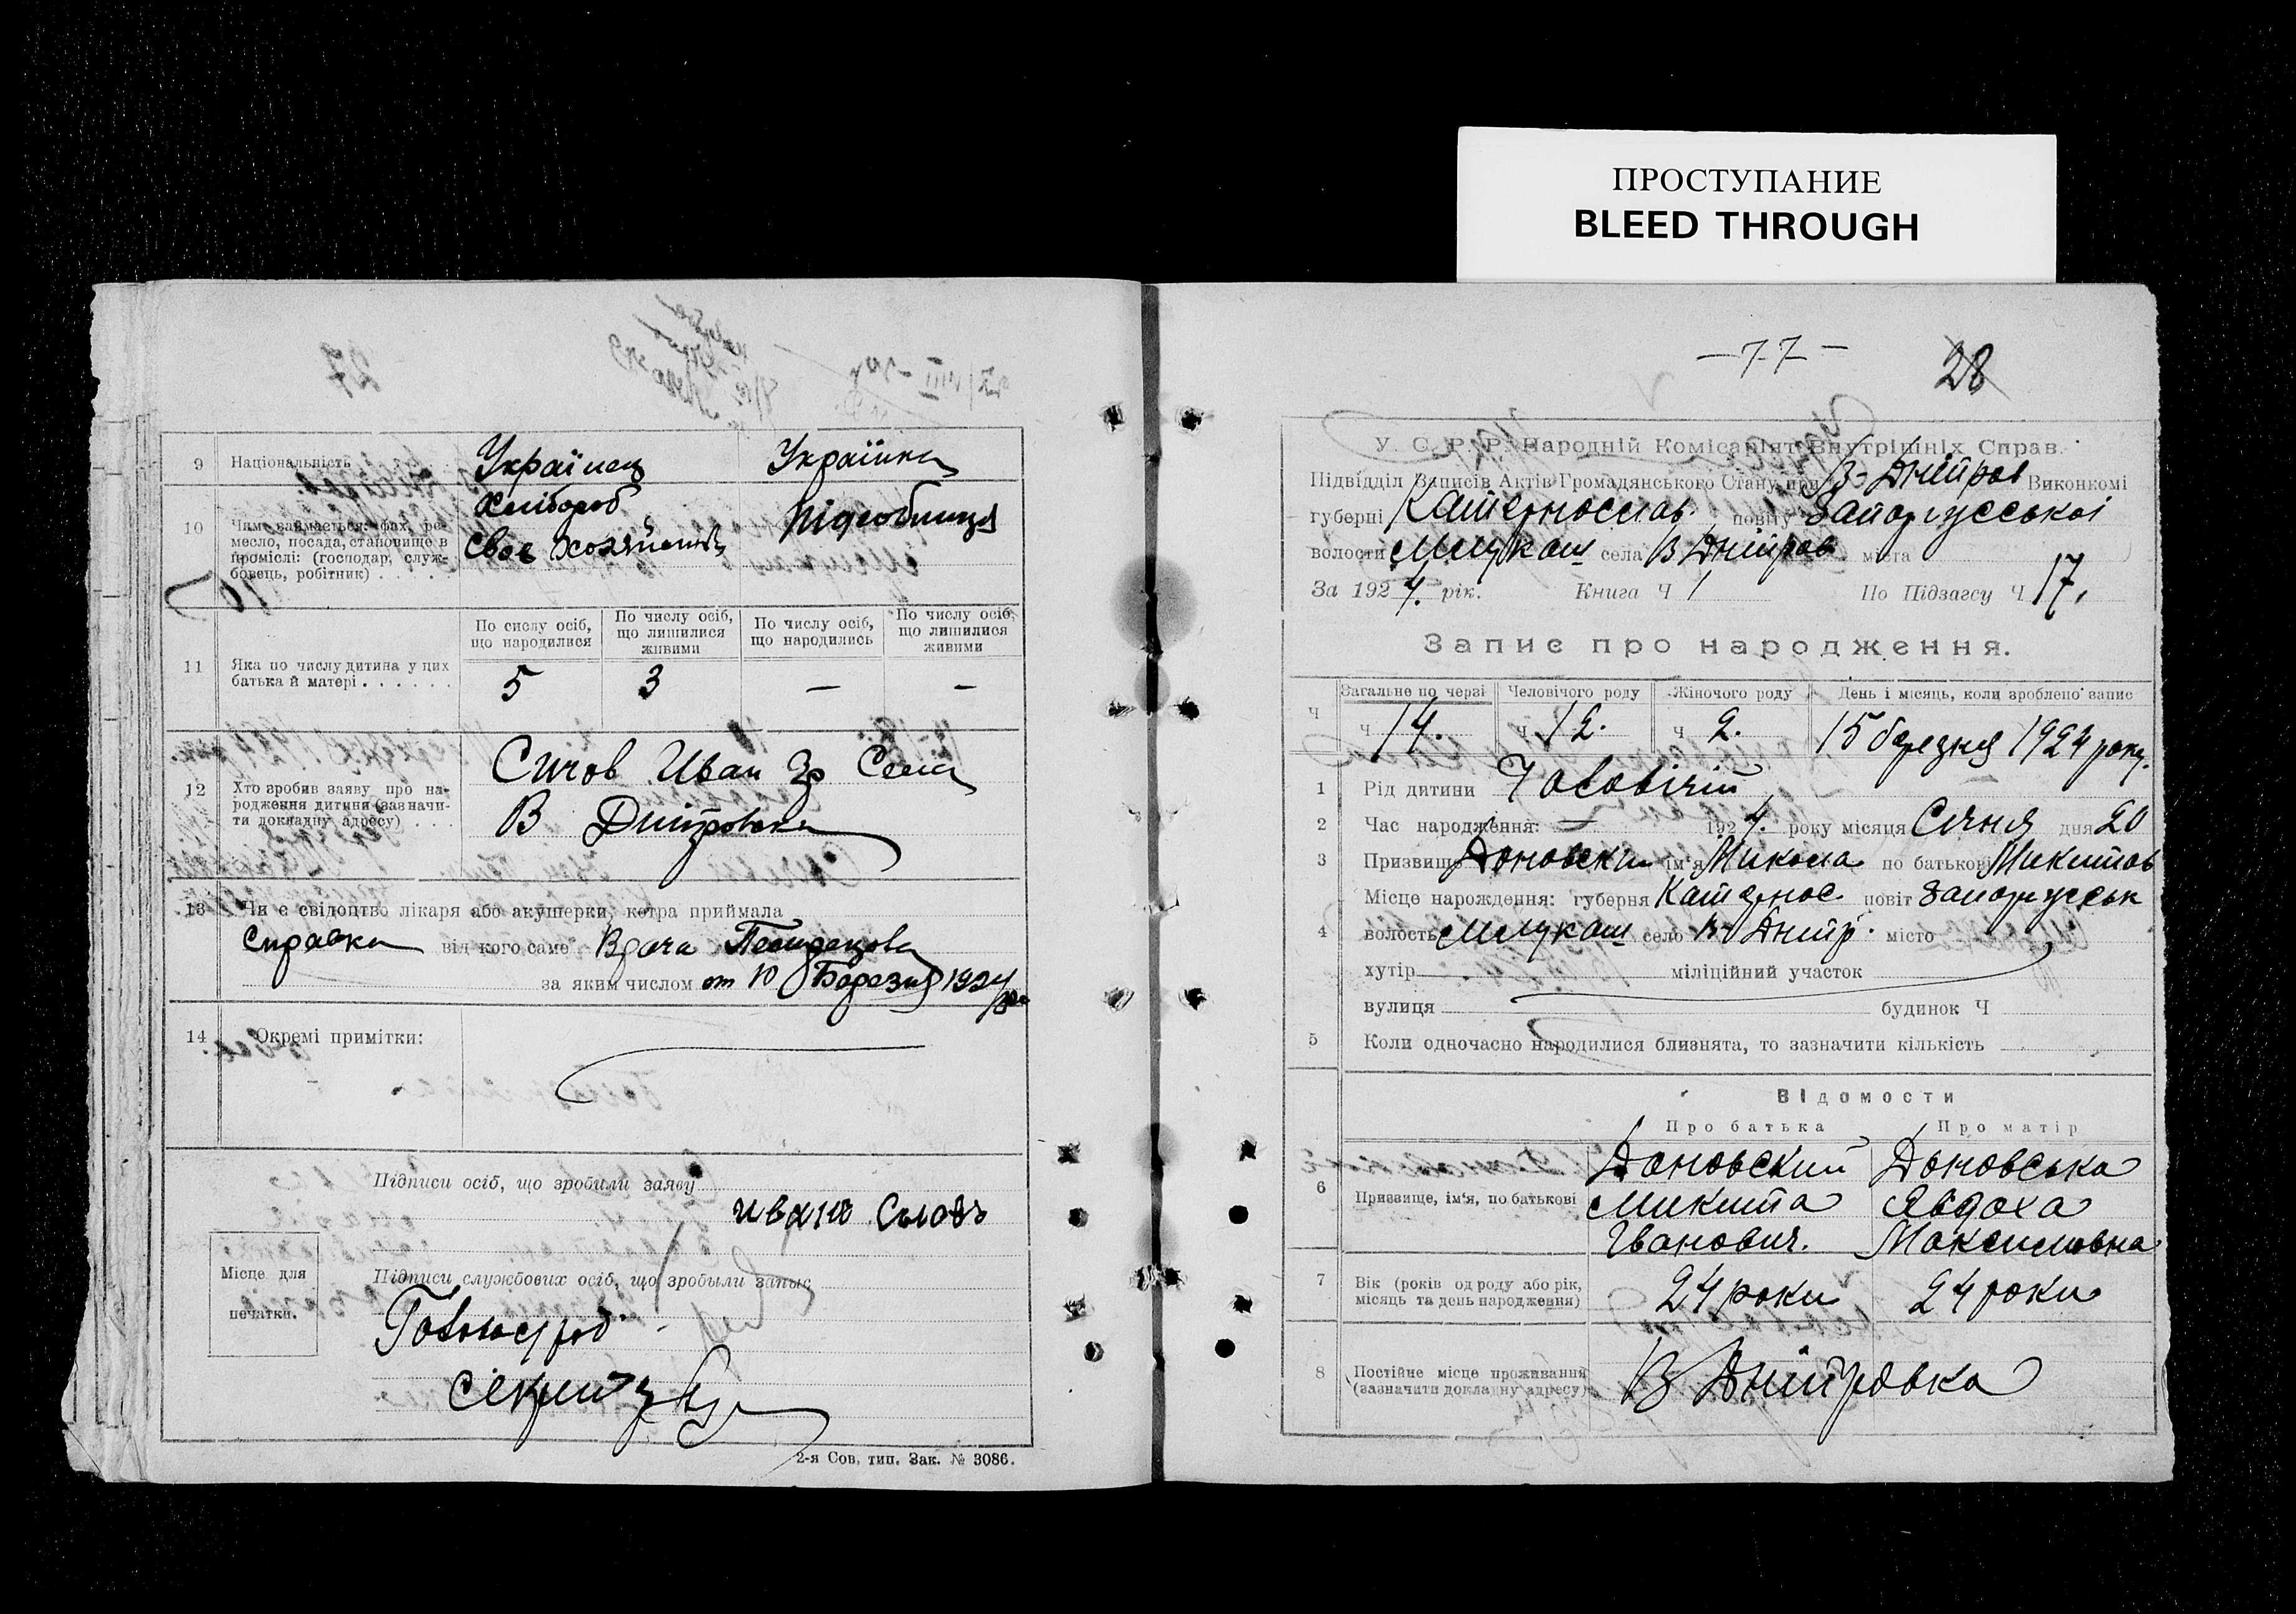 ПРОСТУПАНИЕ
BLEED THROUGH
27
9 Національність Українець Українка
10 Чим займається: фах, ремесло, посада, становище в проміслі: (господар, службовець, робітник) . . . .
Хлібороб
своє хозяйство
підсобниця
11 Яка по числу дитина у цих батька й матері . . . . . .
По сислу осіб, що народилися
По числу осіб, що лишилися живими
По числу осіб, що народились
По числу осіб, що лишилися живими
5 3 — —
12 Хто зробив заяву про народження дитини (зазначити докладну адресу) . . .
Сичов Иван Гр Села
В Дніпровка
13 Чи є свідоцтво лікаря або акушерки, котра приймала
Справка від кого саме Врача
за яким числом от 10 Березня 1924
14 Окремі примітки:
Підписи осіб, що зробили заяву
иванъ
Місце для печатки.
Підписи службових осіб, що зробыли запыс
2-я Сов. тип. Зак. № 3086.
—77—
28
У. С. Р. Р. Народній Комісаріят Внутрішніх Справ.
Підвідділ Записів Актів Громадянського Стану при В-Дніпров Виконкомі
губерні Катернослав повіту Запоріжської
волости села В Дніпров міста
За 1924. рік. Книга Ч 1 По Підзагсу Ч 17.
Запис про народження.
Ч Загальне по черзі Человічого роду Жіночого роду День і місяць, коли зроблено запис
ч 14. ч 12. ч 2. 15 березня 1924 року.
1 Рід дитини Чоловічій
2 Час народження: — 1924. року місяця Січня дня 20
3 Призвище Доновски ім'я Микола по батькові Микитов
4 Місце нарождення: губерня Катернос повіт Запоріжськ
волость село В Дніпр. місто
хутір міліційний участок
вулиця будинок Ч
5 Коли одночасно народилися близнята, то зазначити кількість
Відомости
Про батька Про матір
6 Призвище, ім'я, по батькові
Доновский Доновська
Микита Явдоха
Іванович. Максимовна
7 Вік (років од роду або рік, місяць та день народження) 24 роки 24 роки
8 Постійне місце проживання (зазначити докладну адресу) В Дніпровка